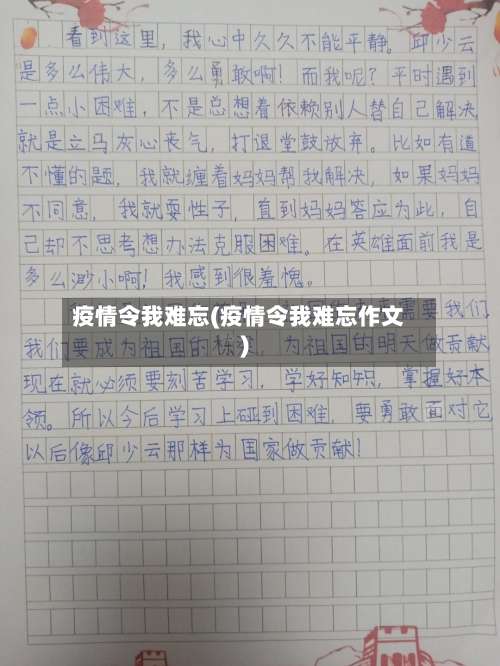 看到这里，我心中久久不能平静。邱少云
是多么伟大，多么勇敢啊！而我呢？平时遇到
一点小困难，不是总想着依赖别人替自己解决，
就是立马灰心丧气，打退堂鼓放弃。比如有道
不懂的题，我就缠着妈妈帮我解决，如果妈妈
不同意，我就耍性子，直到妈妈答应为此，自
己却不思考想办法克服困难。在英雄面前我是
多么渺小啊！我感到很羞愧。
需要我们，
疫情令我难忘(疫情令我难忘作文
)
我们要成为祖国的栋梁，为祖国的明天做贡献
现在就必须要刻苦学习，学好知识，掌握好本
领。所以今后学习上碰到困难，要勇敢面对它
以后像邱少云那样为国家做贡献！